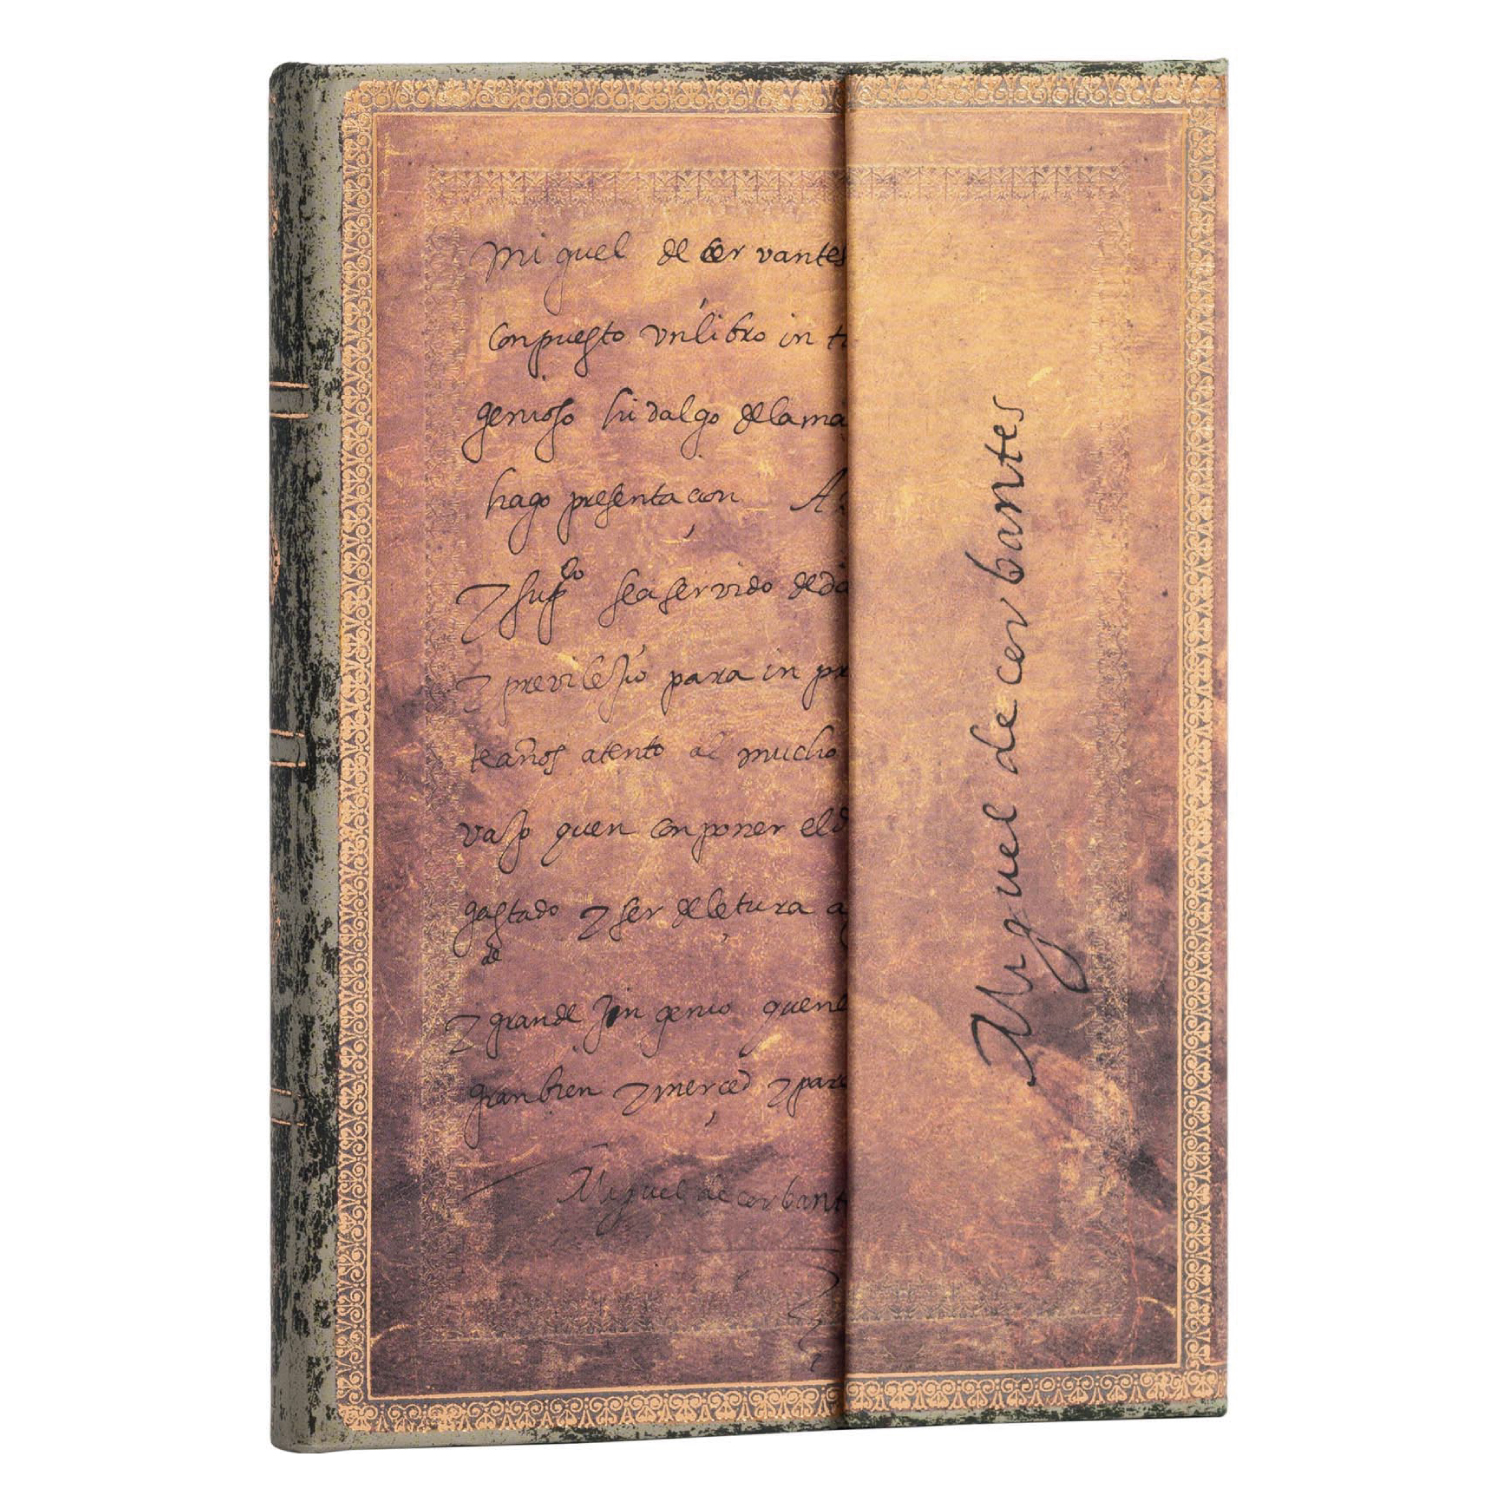 Miguel de cervantes
Conpuesto vn libro in ti
genioso hidalgo dela ma
hago presentacion A.
sea servido de da
previlesio para in pr
te años atento al mucho
vajo quen conponer el d
gastado y ser de letura a
de
y grande yn genio quene
gran bien y merced y para
Miguel de cerbant
Miguel de cerbantes